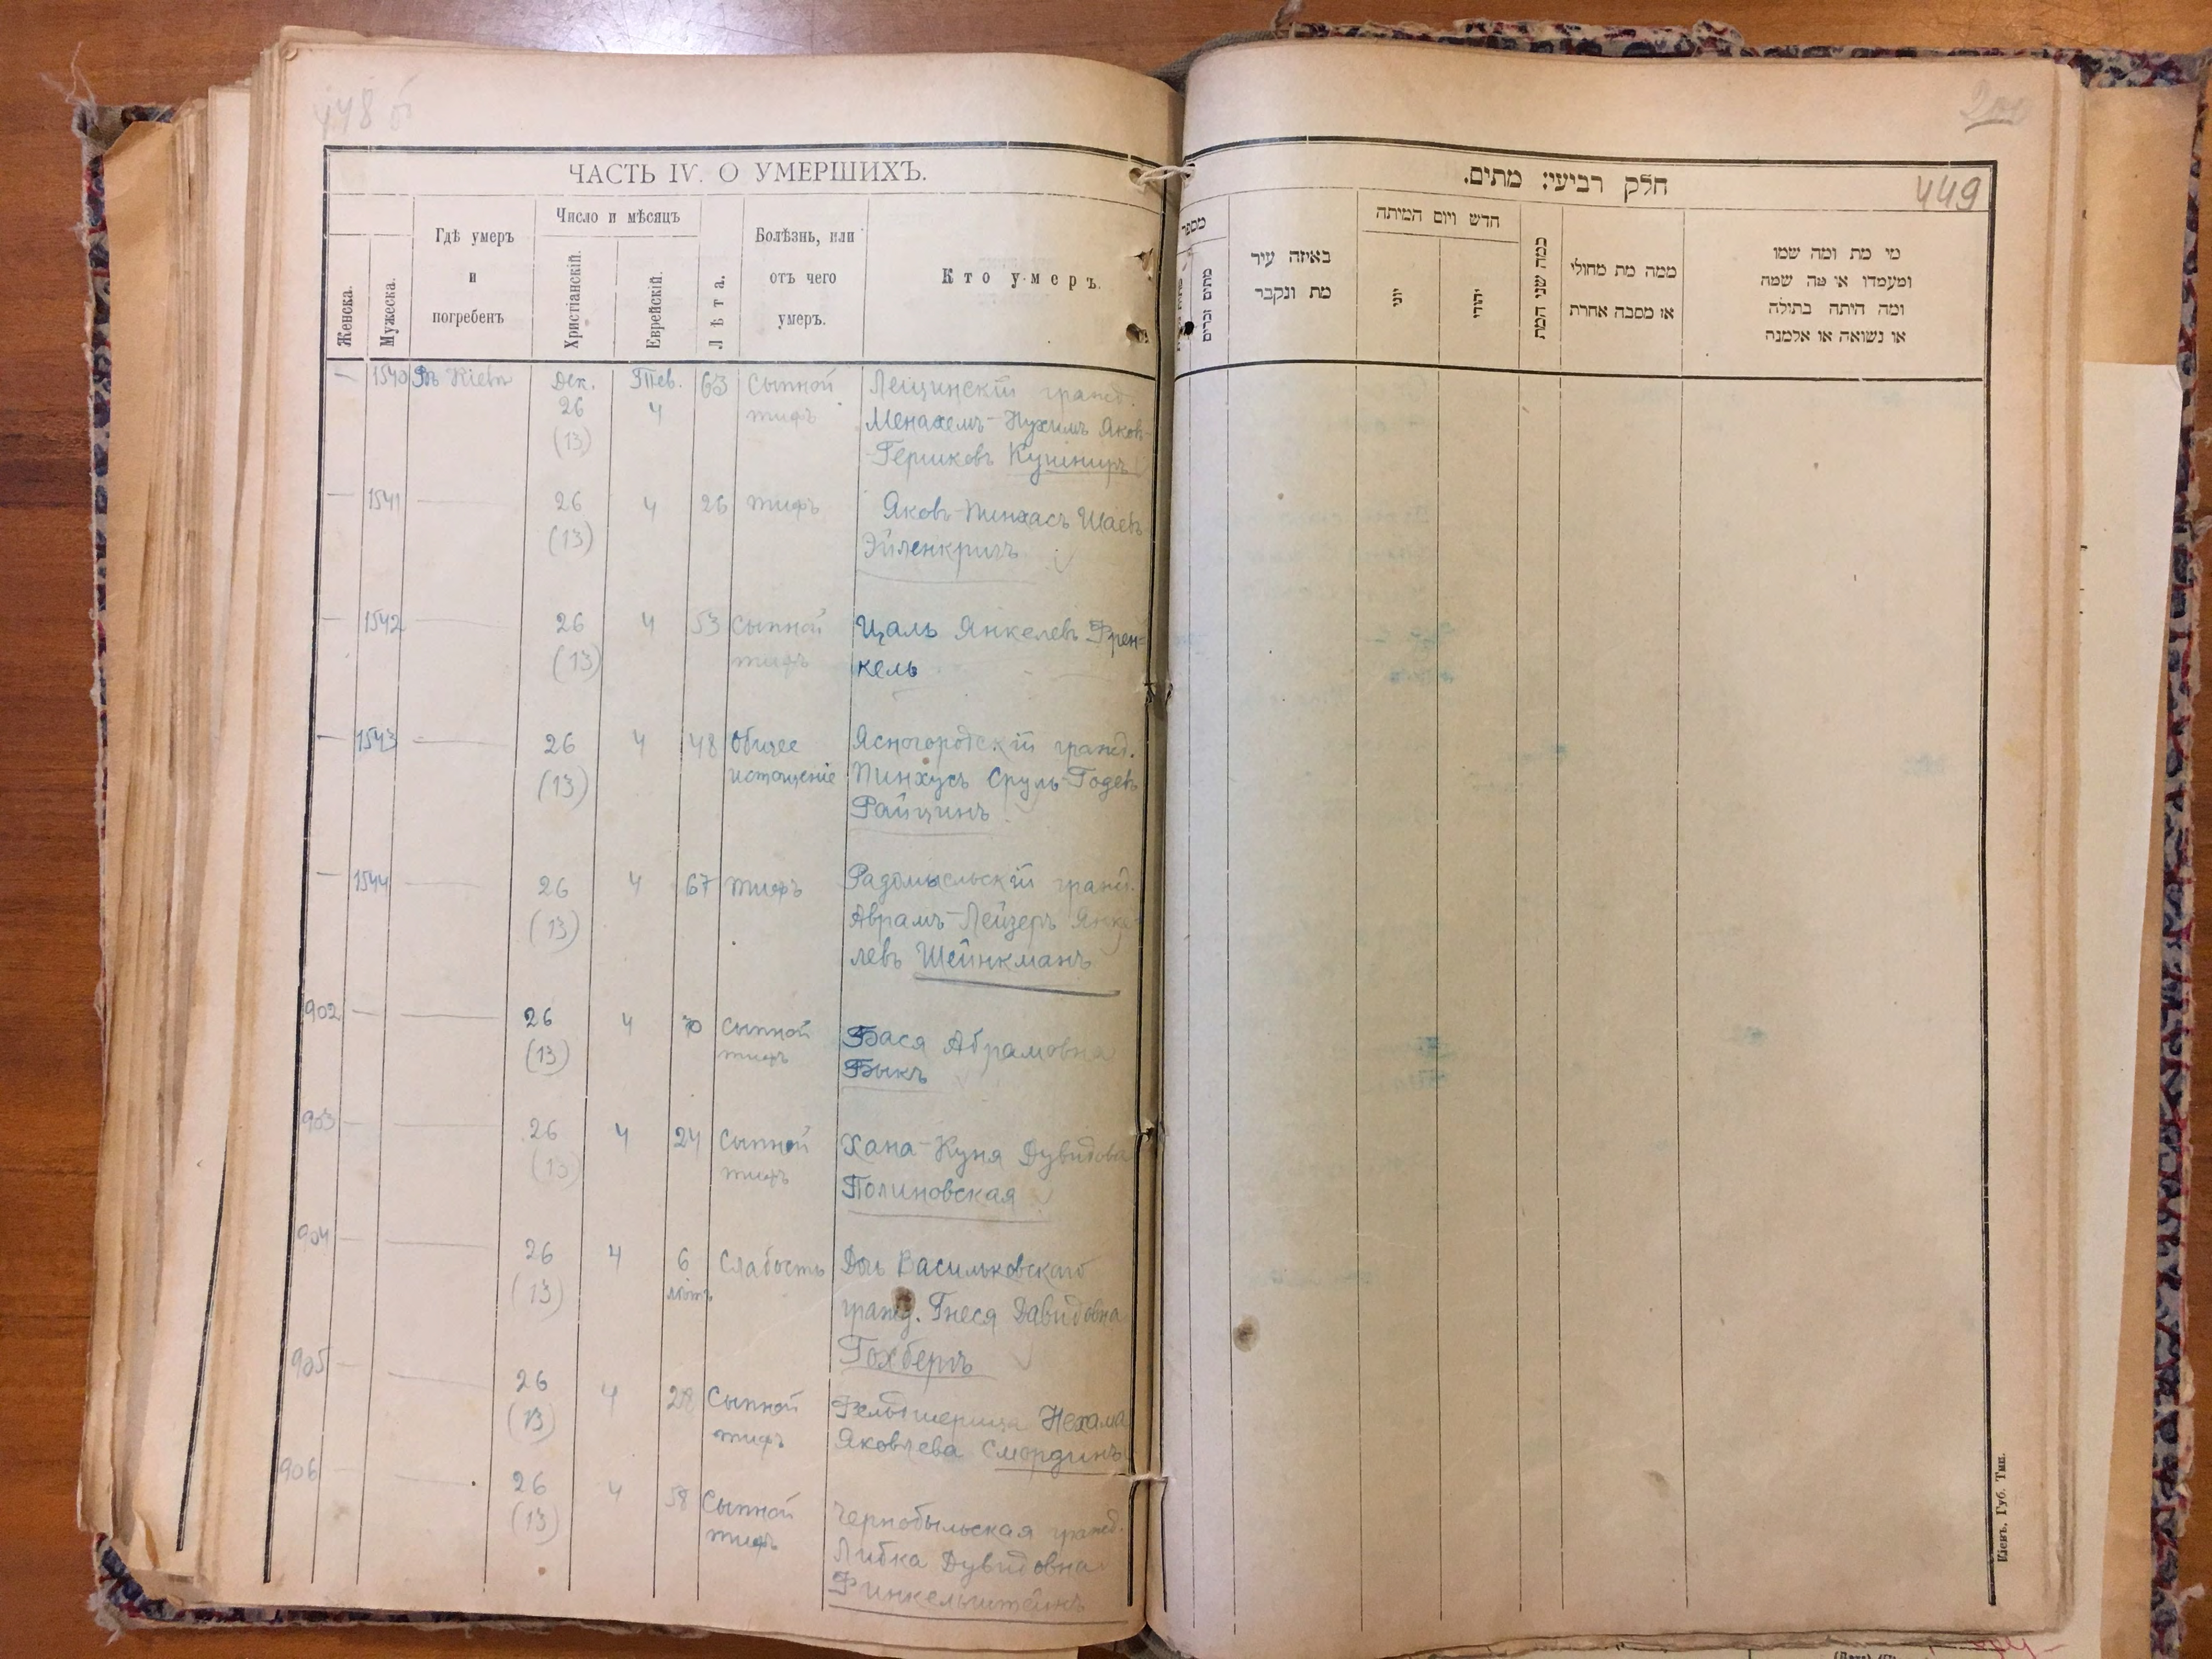 448 б
ЧАСТЬ IV. О УМЕРШИХЪ.
Женска.
Мужеска.
Гдѣ умеръ
и
погребенъ
Число и мѣсяцъ
Христіанскій.
Еврейскій.
Лѣта.
Болѣзнь, или
отъ чего
умеръ.
Кто умеръ.
— 1540 Въ Кіевѣ Дек. Тев. 63 Сыпной Лещинскій гражд.
26 4 тифъ Менахемъ-Нухимъ Яков-
(13) -Гершковъ Кушниръ
— 1541 — 26 4 26 тифъ Яковъ-Пинхасъ Шаевъ
(13) Эйленкригъ
— 1542 — 26 4 53 Сыпной Цаль Янкелевъ Френ-
(13) тифъ кель
— 1543 — 26 4 48 Общее Ясногородскій гражд.
(13) истощеніе Пинхусъ Сруль-Годевъ
Райцинъ
— 1544 — 26 4 67 тифъ Радомысльскій гражд.
(13) Аврамъ-Лейзеръ Янке-
левъ Шейнкманъ
902 — — 26 4 70 Сыпной Бася Абрамовна
(13) тифъ Быкъ
903 — — 26 4 24 Сыпной Хана-Куня Дувидова
(13) тифъ Полиновская
904 — 26 4 6 Слабость Дочь Васильковскаго
(13) лѣтъ гражд. Гнеся Давидовна
Гохбергъ
905 — — 26 4 28 Сыпной Фельдшерица Нехама
(13) тифъ Яковлева Смординъ
906 — — 26 4 58 Сыпной Чернобыльская гражд.
(13) тифъ Либка Дувидовна
Финкельштейнъ
449
חלק רביעי: מתים.
מספר
מתים זכרים
באיזה עיר
מת ונקבר
חדש ויום המיתה
יוני
יהודי
כמה שני המת
ממה מת מחולי
או מסבה אחרת
מי מת ומה שמו
ומעמדו או מה שמה
ומה היתה בתולה
או נשואה או אלמנה
Кіевъ. Губ. Тип.